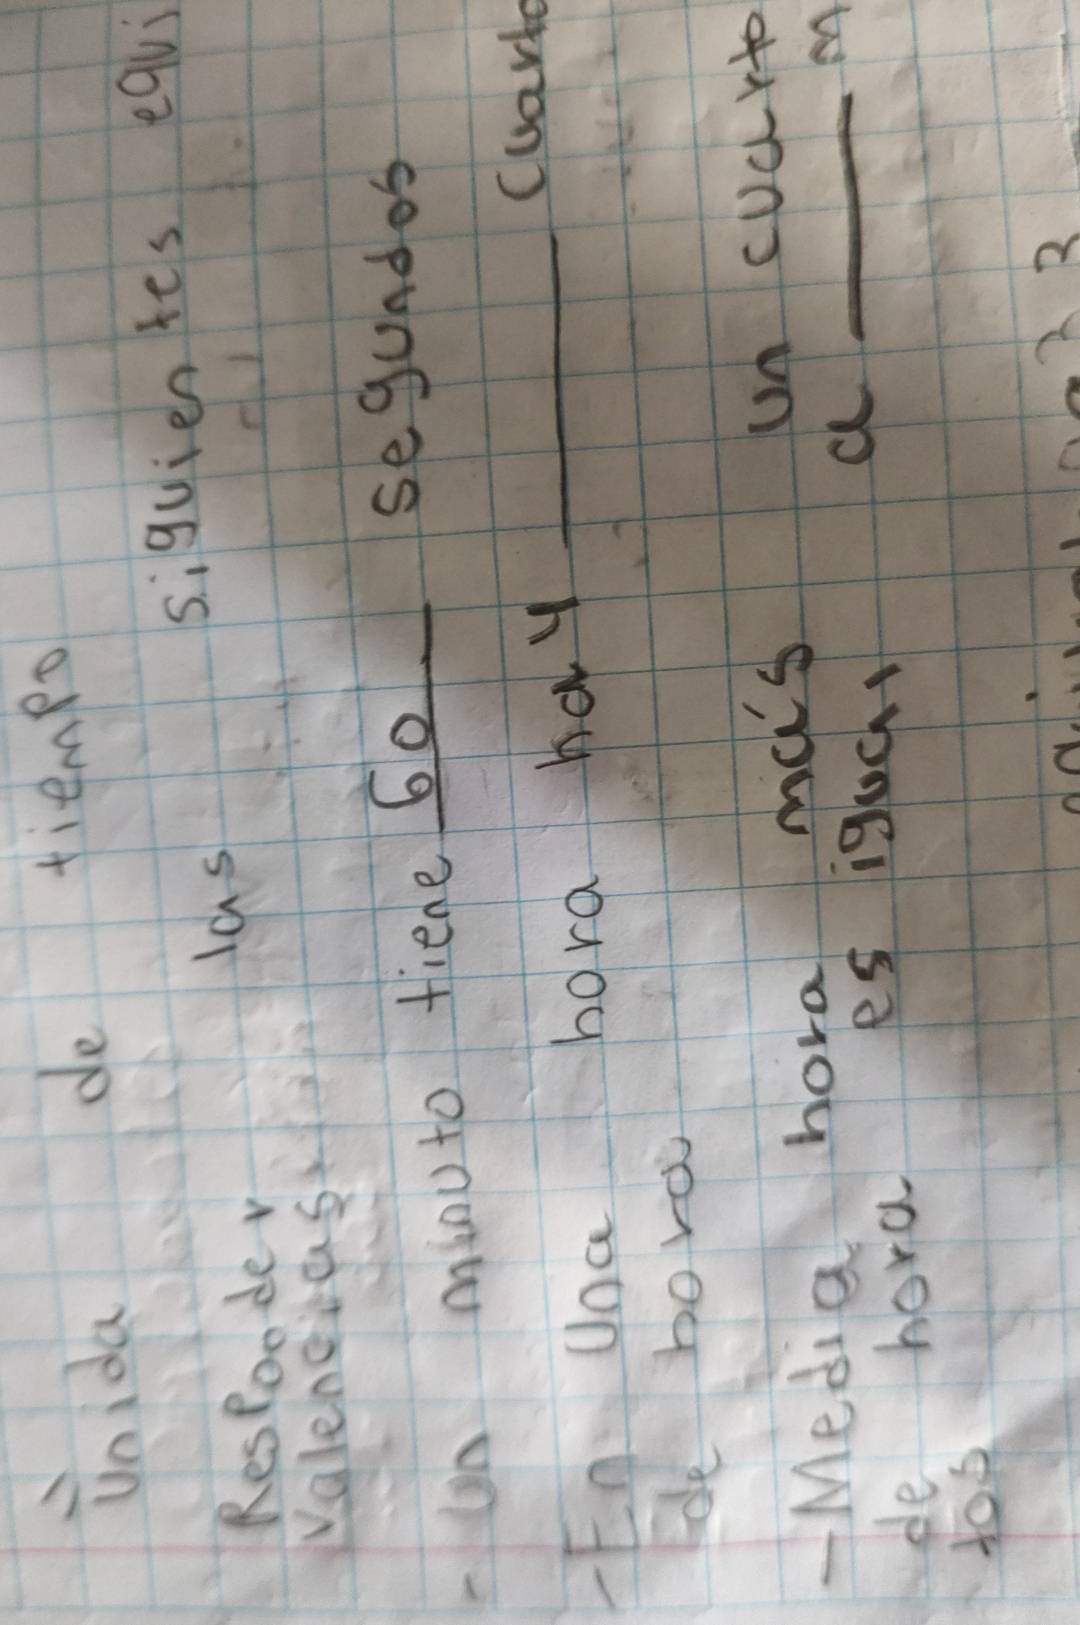 Unida de tiempo
Responder las siguientes equi
valencias.
- un minuto tiene 60 segundos
- En una hora hay cuarto
de hora
- Media hora más un cuarto
de hora es igual a m
tos